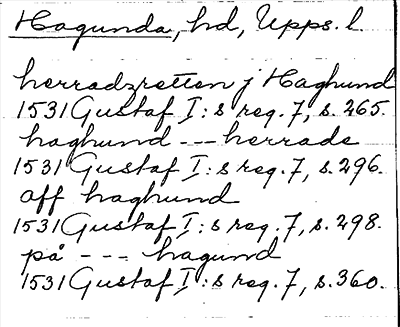 Hagunda, hd, Upps. l.
herradzretten j Haghund
1531 Gustaf I:s reg. 7, s. 265.
haghund --- herrade
1531 Gustaf I:s reg. 7, s. 296.
aff haghund
1531 Gustaf I:s reg. 7, s. 298.
på --- hagund
1531 Gustaf I:s reg. 7, s. 360.